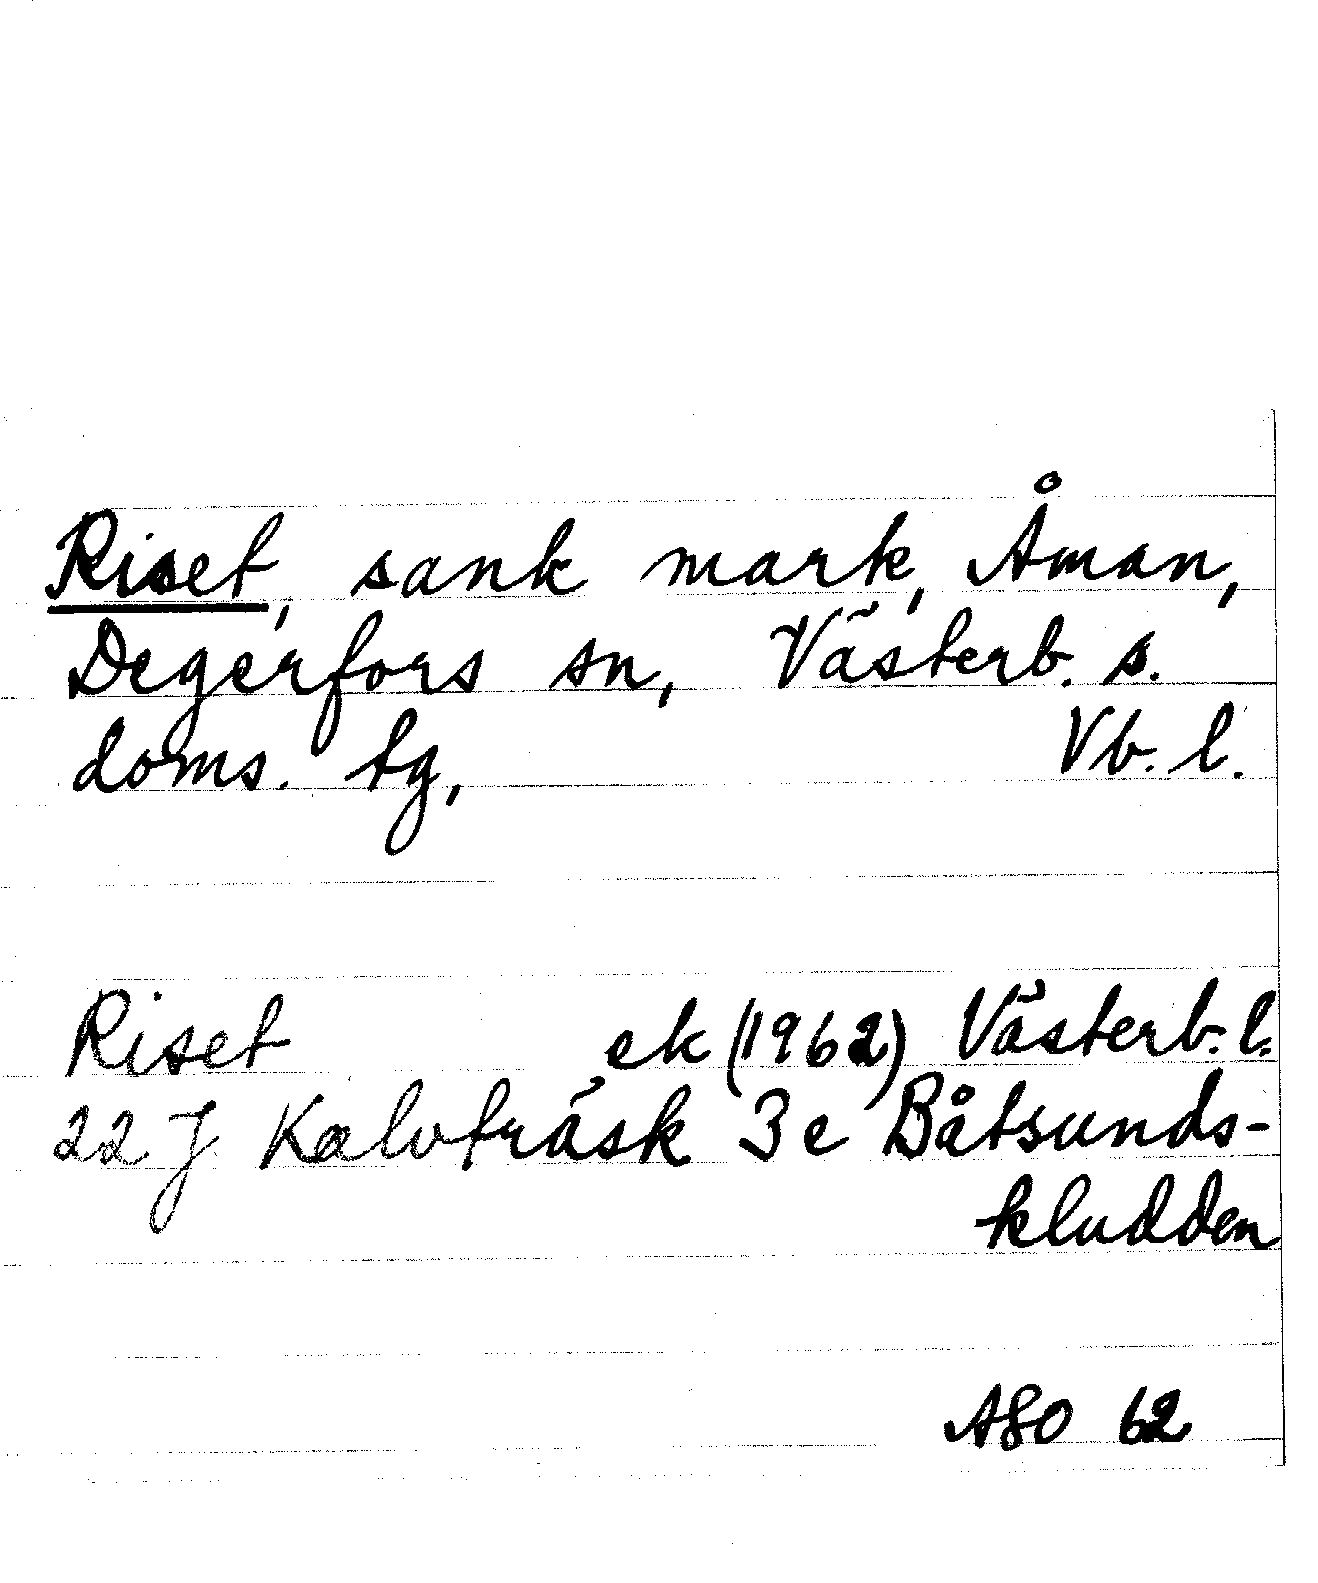 Riset, sank mark, Åman,
Degerfors sn, Västerb. s.
doms. tg, Vb. l.
Riset ek (1962) Västerb. l.
22 J Kalvträsk 3 e Båtsunds-
kludden
ASO 62